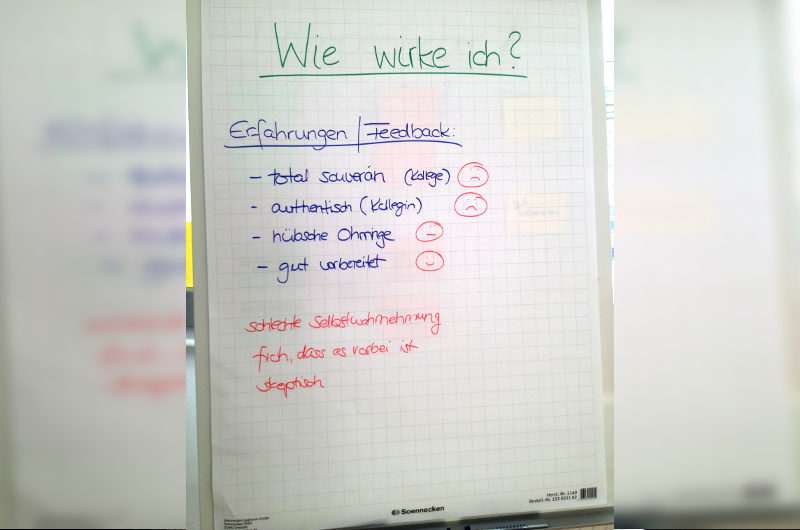 Wie wirke ich?
Erfahrungen | Feedback:
- total souverän (Kollege)
- authentisch (Kollegin)
- hübsche Ohrringe
- gut vorbereitet
schlechte Selbstwahrnehmung
froh, dass es vorbei ist
skeptisch
Soennecken